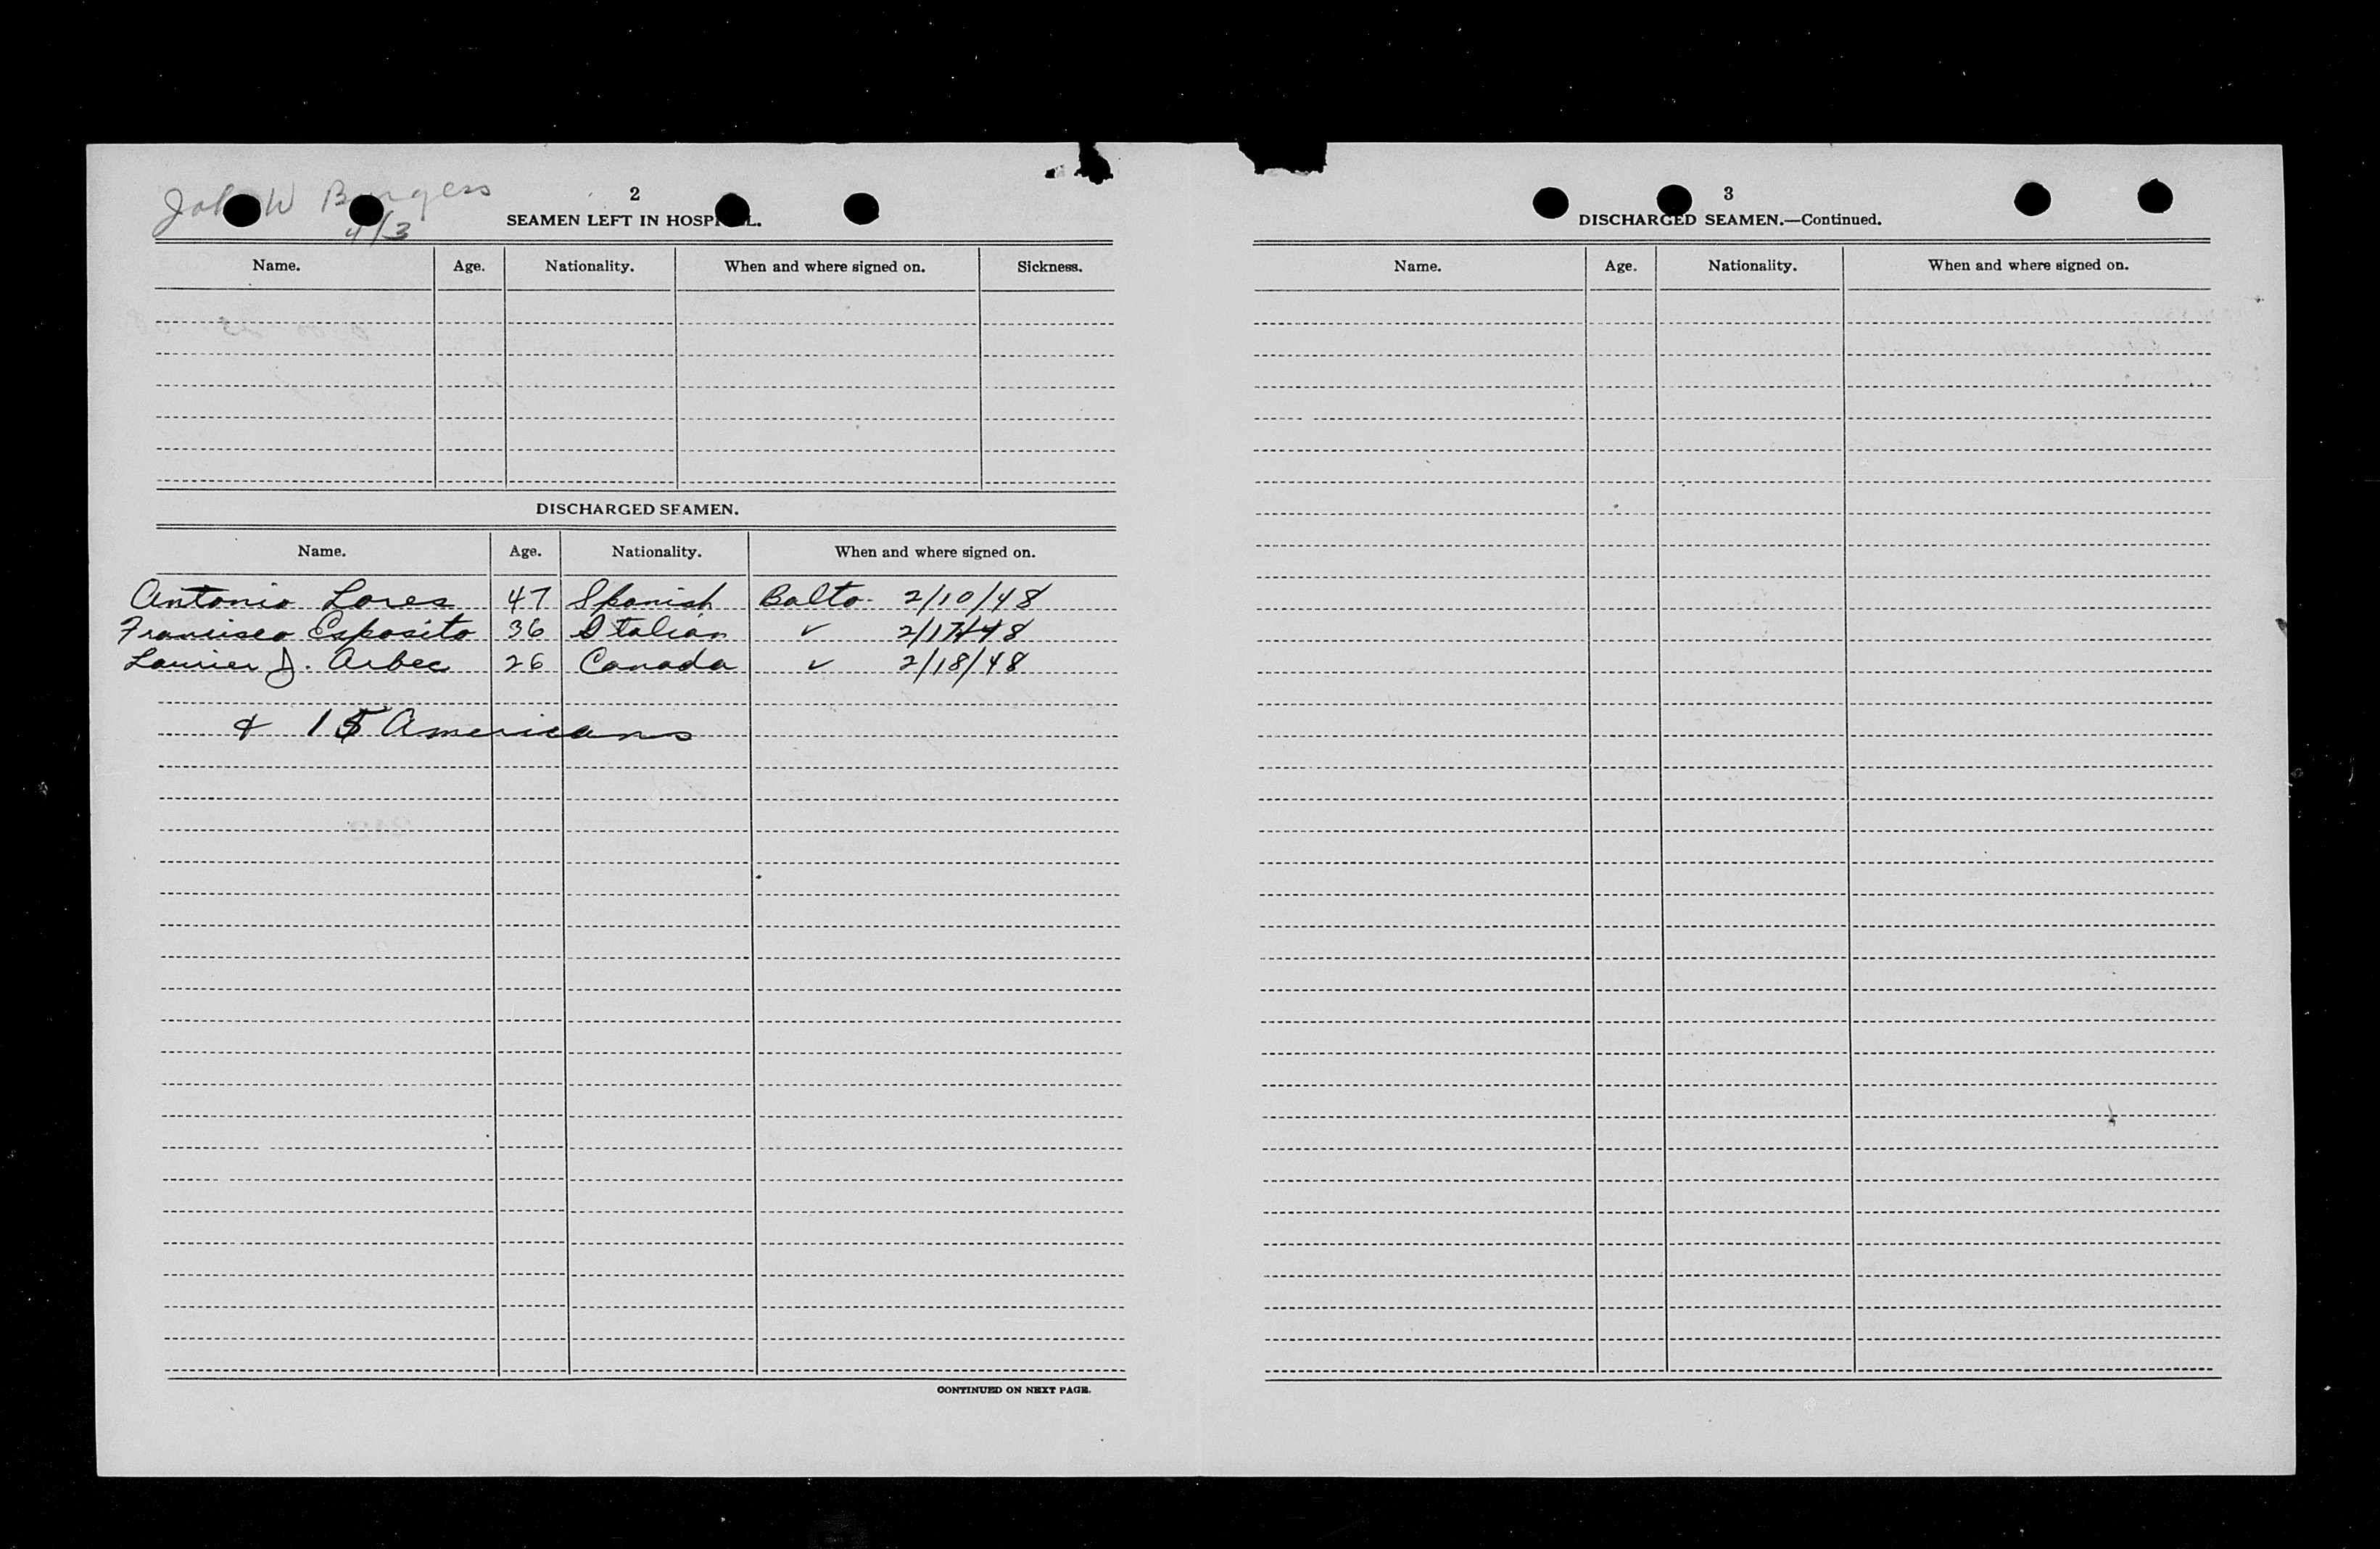 John W Burgess
4/3
2
SEAMEN LEFT IN HOSPITAL.
Name. Age. Nationality. When and where signed on. Sickness.
DISCHARGED SEAMEN.
Name. Age. Nationality. When and where signed on.
Antonio Lores 47 Spanish Balto. 2/10/48
Francisco Esposito 36 Italian ✓ 2/17/48
Laurier J. Arbec 26 Canada ✓ 2/18/48
& 15 Americans
CONTINUED ON NEXT PAGE.
3
DISCHARGED SEAMEN.—Continued.
Name. Age. Nationality. When and where signed on.